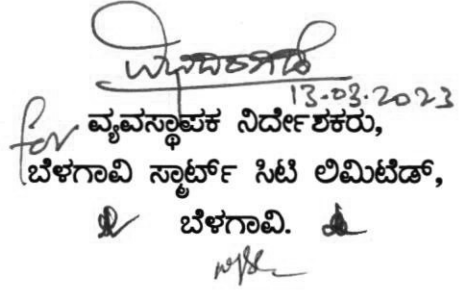 13.03.2023
for ವ್ಯವಸ್ಥಾಪಕ ನಿರ್ದೇಶಕರು,
ಬೆಳಗಾವಿ ಸ್ಮಾರ್ಟ್ ಸಿಟಿ ಲಿಮಿಟೆಡ್,
ಬೆಳಗಾವಿ.